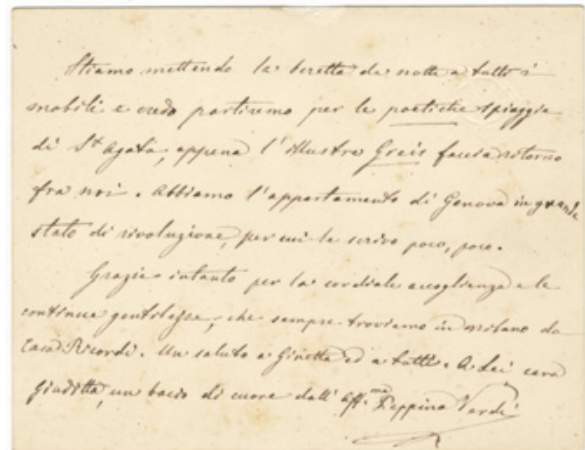 Stiamo mettendo la beretta da notte a tutti i
mobili e credo partiremo per le poetiche spiaggie
di St Agata, appena l'Illustre Greis faccia ritorno
fra noi. Abbiamo l'appartamento di Genova in grande
stato di rivoluzione, per cui le scrivo poco, poco.
Grazie intanto per la cordiale accoglienza e le
continue gentilezze, che sempre troviamo in Milano da
Casa Ricordi. Un saluto a Ginetta ed a tutti. A Lei cara
Giuditta, un bacio di cuore dall' Aff.ma Peppina Verdi